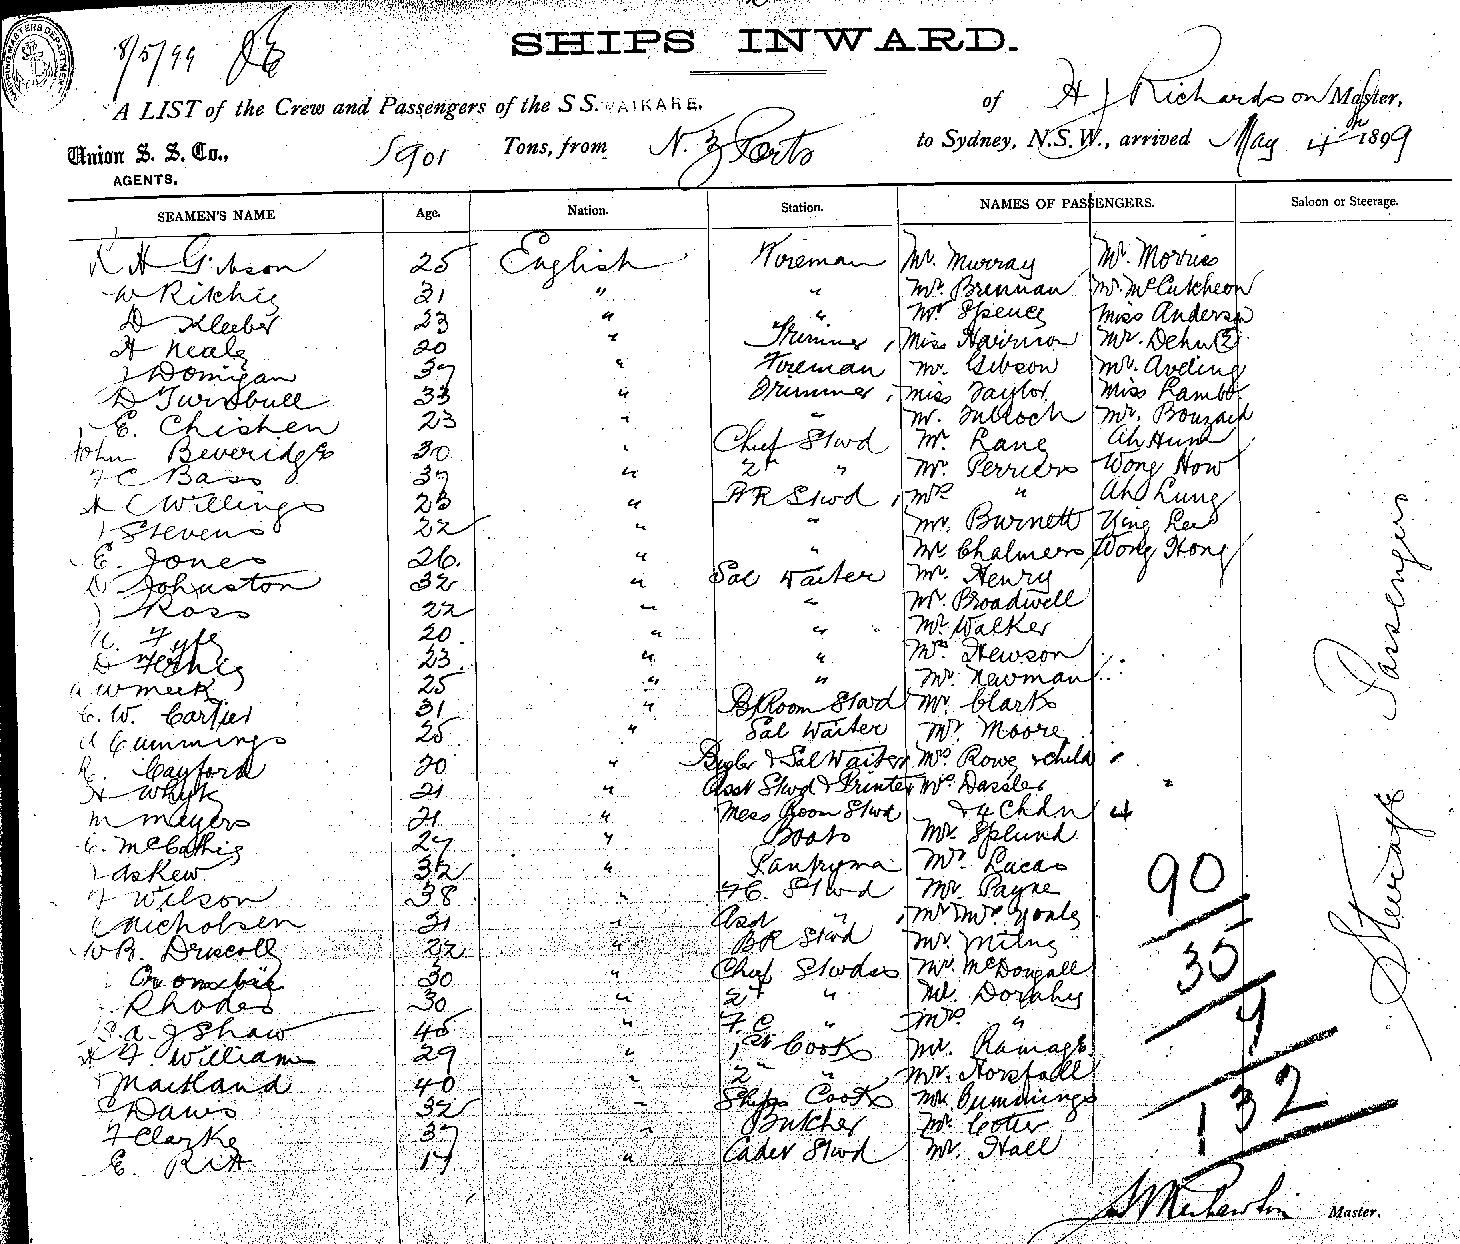 8/5/99
SHIPS INWARD.
A LIST of the Crew and Passengers of the S S. WAIKARE, of H J Richardson Master,
Union S. S. Co., 1901 Tons, from N. Z Ports to Sydney, N.S.W., arrived May 4th 1899
AGENTS.
SEAMEN'S NAME Age. Nation. Station. NAMES OF PASSENGERS. Saloon or Steerage.
H Gibson 25 English Foreman Mr. Murray Mr. Morris
W Ritchie 31 " " Mr. Brennan Mr. McCutcheon
D Kleeber 23 " " Mr Spence Miss Anderson
H Neale 20 " Trimmer Miss Harrison Mr. Dehn 2
J Donigan 37 " Foreman Mr. Gibson Mr. Aveling
D Turnbull 33 " Trimmer Miss Taylor Miss Lambt
E. Chishen 23 " " Mr. Tulloch Mr. Bouzaid
John Beveridge 30 " Chief Stwd Mr. Lane Ah Hum
F C Bass 37 " 2nd " Mr. Perriers Wong How
H C Willings 23 " BR Stwd Mrs " Ah Lung
J Stevens 22 " " Mr. Burnett King Lee
E. Jones 26. " " Mr. Chalmers Wong Hong
D Johnston 32 " Sal Waiter Mr. Henry
J Ross 22 " " Mr. Broadwell
Fyfe 20 " " Mr. Walker
D 23 " " Mr. Hewson
W Meek 25 " " Mr. Newman
C. W. Carter 31 " B Room Stwd Mr. Clark
Cummings 25 " Sal Waiter Mr. Moore
Cayford 20 " Bugler & Sal Waiter Mrs Rowe & child
H Whyte 21 " Asst Stwd & Printer Mrs. Dassler
M Meyers 21 " Mess Room Stwd & 4 Chdn 4
C. 27 " Boots Mr. Splund
J Askew 32 " Pantryman Mr. Lucas
F Wilson 38 " F.C. Stwd Mr. Payne
C Nicholsen 31 " Asst " Mr Mrs Yonle
W B. Driscoll 22 " BR Stwd Mr. Milne
30 " Chief Stwdss Mr. McDougall
Rhodes 30 " 2nd " Mr. Dorahy
S. A. J Shaw 45 " F. C " Mrs. "
H F. Williams 29 " 1st Cook Mr. Ramage
J Maitland 40 " 2nd " Mr. Horsfall
C Daws 32 " Ships Cook Mr. Cummings
F Clarke 37 " Butcher Mr. Cotter
E. Ritt 17 " Cadet Stwd Mr. Hall
Steerage Passengers
90
35
7
132
Master.